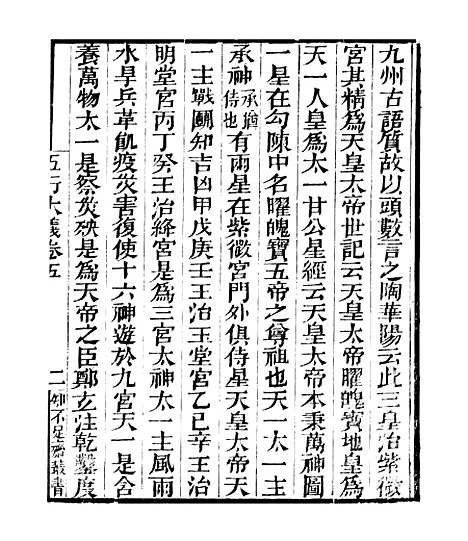 九州古語質故以頭數言之陶華陽云此三皇治紫微
宮其精爲天皇太帝世記云天皇大帝曜魄寶地皇爲
天一人皇爲太一甘公星經云天皇太帝本秉萬神圖
一星在勾陳中名曜魄寶五帝之尊祖也天一太一主
承神承猶侍也有兩星在紫微宮門外俱侍星天皇太帝天
一主戰鬬知吉凶甲戊庚壬王治玉堂宮乙巳辛王治
明堂宮丙丁癸王治絳宮是爲三宮太神太一主風雨
水旱兵革飢疫災害復使十六神遊於九宮天一是含
養萬物太一是察災殃是爲天帝之臣鄭玄注乾鑿度
五行大義卷五 二 知不足齋叢書